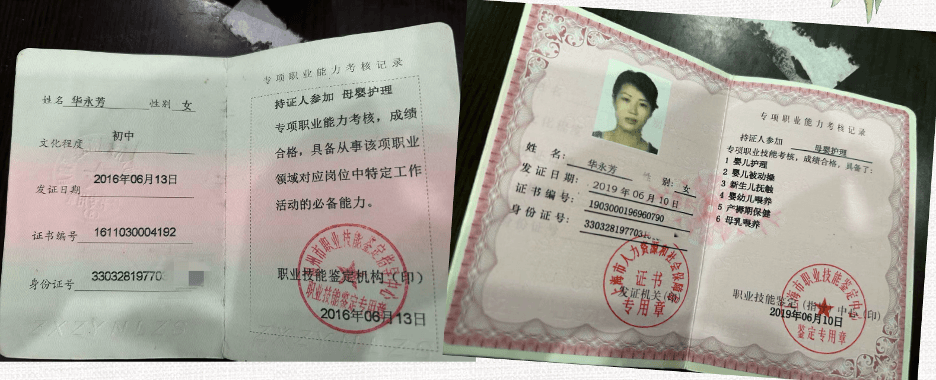 姓名 华永芳 性别 女
文化程度 初中
发证日期 2016年06月13日
证书编号 1611030004192
身份证号 33032819770
专项职业能力考核记录
持证人参加 母婴护理
专项职业能力考核，成绩
合格，具备从事该项职业
领域对应岗位中特定工作
活动的必备能力。
职业技能鉴定机构（印）
州市职业技能鉴定指导中心
职业技能鉴定专用章
2016年06月13日
姓名： 华永芳 性别： 女
发证日期： 2019年06月10日
证书编号： 1903000196960790
身份证号： 3303281977031
上海市人力资源和社会保障局
证书
专用章
发证机关（印）
专项职业能力考核记录
持证人参加 母婴护理
专项职业技能考核，成绩合格，具备了：
1 婴儿护理
2 婴儿被动操
3 新生儿抚触
4 婴幼儿喂养
5 产褥期保健
6 母乳喂养
职业技能鉴定（指导）中心（印）
上海市职业技能鉴定中心
2019年06月10日
鉴定专用章